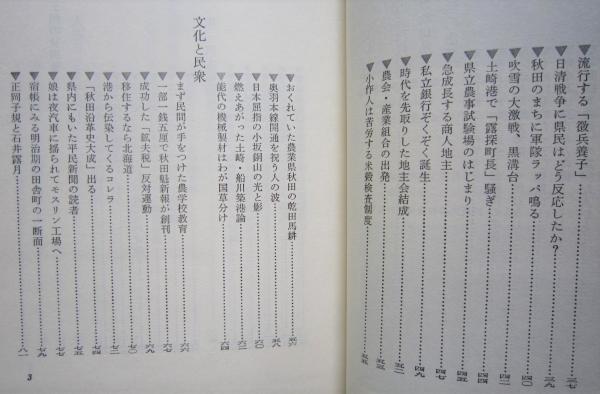 ▼流行する「徴兵養子」……三七
▼日清戦争に県民はどう反応したか?……三九
▼秋田のまちに軍隊ラッパ鳴る……四〇
▼吹雪の大激戦、黒溝台……四二
▼土崎港で「露探町長」騒ぎ……四四
▼県立農事試験場のはじまり……四五
▼急成長する商人地主……四六
▼私立銀行ぞくぞく誕生……四九
▼時代を先取りした地主会結成……五二
▼農会・産業組合の出発……五三
▼小作人は苦労する米穀検査制度……五五
▼おくれていた農業県秋田の乾田馬耕……五六
▼奥羽本線開通を祝う人の波……五八
▼日本屈指の小坂銅山の光と影……六〇
▼燃えあがった土崎・船川築港論……六二
▼能代の機械製材はわが国草分け……六四
文化と民衆
▼まず民間が手をつけた農学校教育……六六
▼一部一銭五厘で秋田魁新報が創刊……六七
▼成功した「鉱夫税」反対運動……六九
▼移住するなら北海道……七〇
▼港から伝染してくるコレラ……七二
▼「秋田沿革史大成」出る……七四
▼県内にもいた平民新聞の読者……七五
▼娘は夜汽車に揺られてモスリン工場へ……七七
▼宿帳にみる明治期の田舎町の一断面……七九
▼正岡子規と石井露月……八一
3